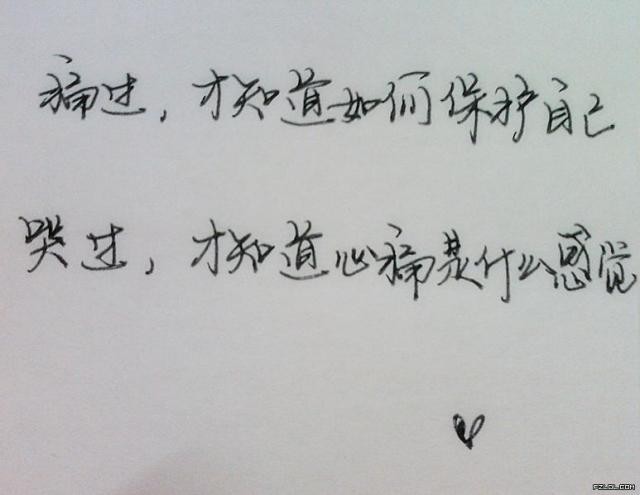 痛过，才知道如何保护自己
哭过，才知道心痛是什么感觉
PZLOL.COM